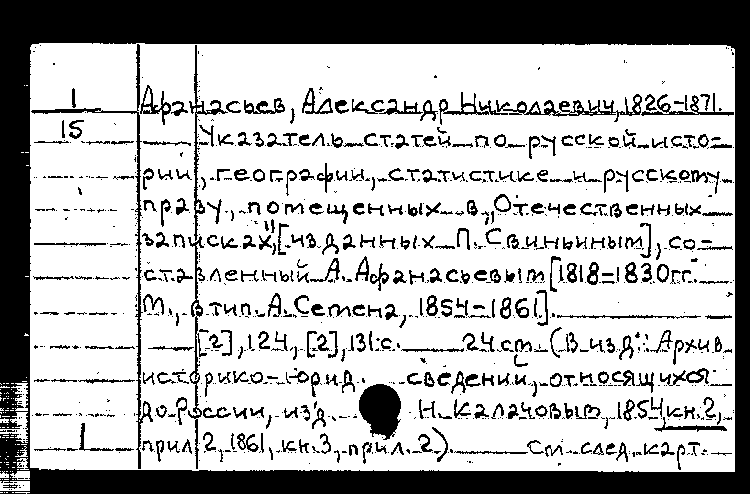 1 Афанасьев, Александр Николаевич, 1826-1871.
15 Указатель статей по русской исто-
рии, географии, статистике и русскому
праву, помещенных в „Отечественных
записках", [изданных П. Свиньиным], со-
ставленный А. Афанасьевым [1818-1830гг.
М., в тип. А. Семена, 1854-1861].
[2], 124, [2], 131 с. 24 см. (В изд.: Архив
историко-юрид. сведений, относящихся
до России, изд. Н. Калачовым, 1854, кн.2,
1 прил. 2, 1861, кн.3, прил. 2). См. след. карт.